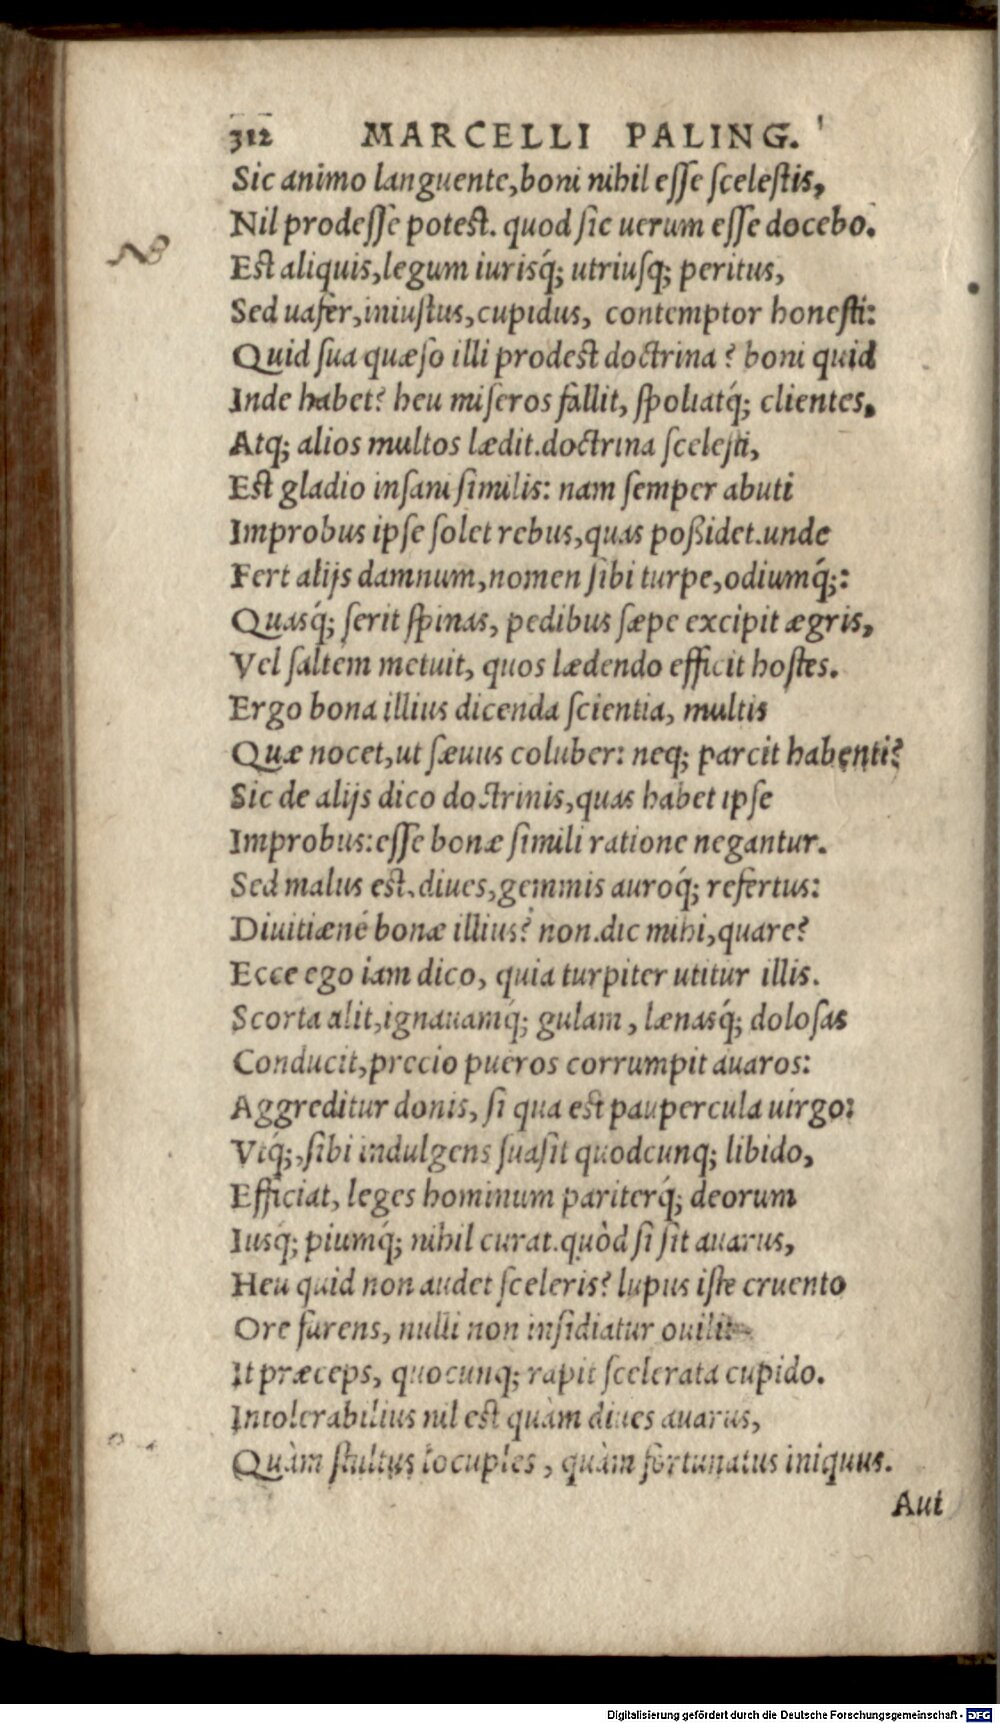 312 MARCELLI PALING.
Sic animo languente,boni nihil eſſe ſceleſtis,
Nil prodeſſe poteſt. quod ſic uerum eſſe docebo.
Eſt aliquis,legum iurisq́; utriuſq; peritus,
Sed uafer,iniuſtus,cupidus, contemptor honeſti:
Quid ſua quæſo illi prodeſt doctrina? boni quid
Inde habet? heu miſeros fallit, ſpoliatq́; clientes,
Atq; alios multos lædit.doctrina ſceleſti,
Eſt gladio inſani ſimilis: nam ſemper abuti
Improbus ipſe ſolet rebus,quas poßidet.unde
Fert alijs damnum,nomen ſibi turpe,odiumq́;:
Quasq́; ſerit ſpinas, pedibus ſæpe excipit ægris,
Vel ſaltem metuit, quos lædendo efficit hoſtes.
Ergo bona illius dicenda ſcientia, multis
Quæ nocet,ut ſæuus coluber: neq; parcit habenti?
Sic de alijs dico doctrinis,quas habet ipſe
Improbus:eſſe bonæ ſimili ratione negantur.
Sed malus eſt,diues,gemmis auroq́; refertus:
Diuitiæné bonæ illius? non.dic mihi,quare?
Ecce ego iam dico, quia turpiter utitur illis.
Scorta alit,ignauamq́; gulam, lænasq́; doloſas
Conducit,precio pueros corrumpit auaros:
Aggreditur donis, ſi qua eſt paupercula uirgo:
Vtq́;,ſibi indulgens ſuaſit quodcunq; libido,
Efficiat, leges hominum pariterq́; deorum
Iusq́; piumq́; nihil curat.quòd ſi ſit auarus,
Heu quid non audet ſceleris? lupus iſte cruento
Ore furens, nulli non inſidiatur ouili:
It præceps, quocunq; rapit ſcelerata cupido.
Intolerabilius nil eſt quàm diues auarus,
Quàm ſtultus locuples, quàm fortunatus iniquus.
Aut
Digitalisierung gefördert durch die Deutsche Forschungsgemeinschaft - DFG